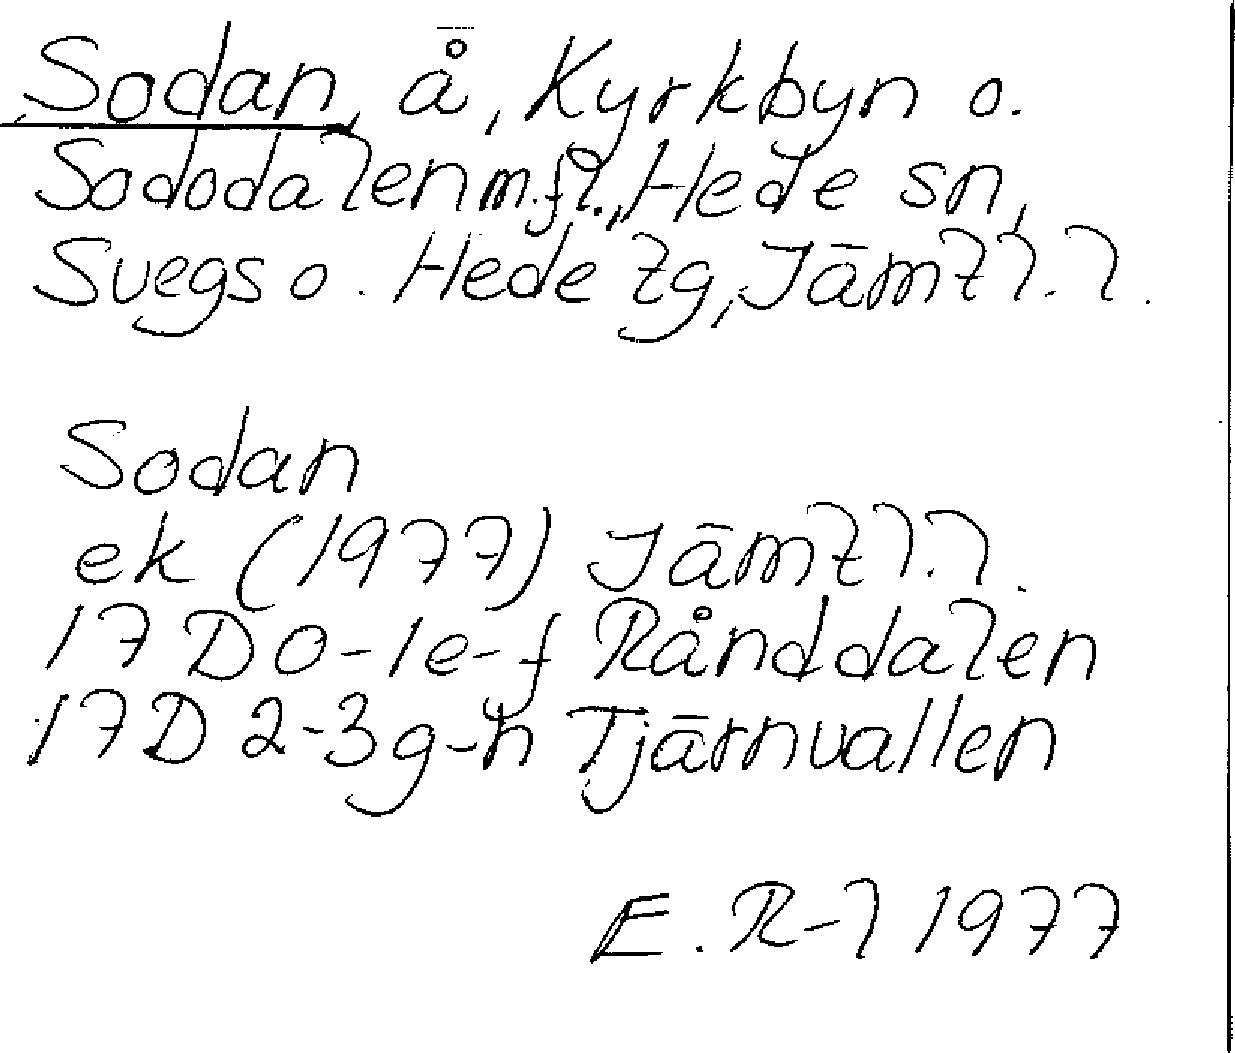 Sodan, å, Kyrkbyn o.
Sododalen m.fl., Hede sn,
Svegs o. Hede tg, Jämtl. l.
Sodan
ek (1977) Jämtl. l.
17 D 0-1 e-f Rånddalen
17 D 2-3 g-h Tjärnvallen
E. R-l 1977